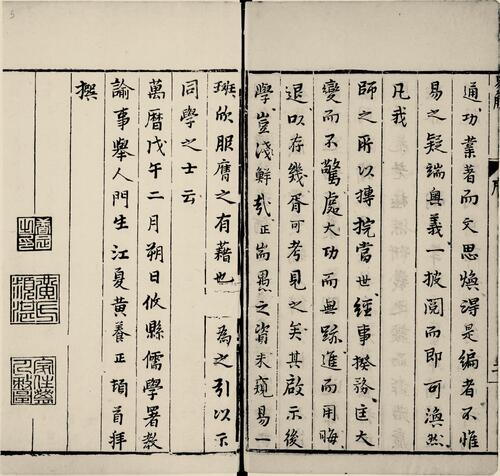 通功業著而文思煥得是編者不惟
易之疑端奧義一披閱而即可渙然
凡我
師之所以摶捖當世經事揆務匡大
變而不驚處大功而無跡進而用晦
退以存幾胥可考見之矣其啟示後
學豈淺鮮哉正耑愚之資未窺易一
班欣服膺之有藉也 為之引以下
同學之士云
萬曆戊午二月朔日攸縣儒學署教
諭事舉人門生江夏黃養正頓首拜
撰